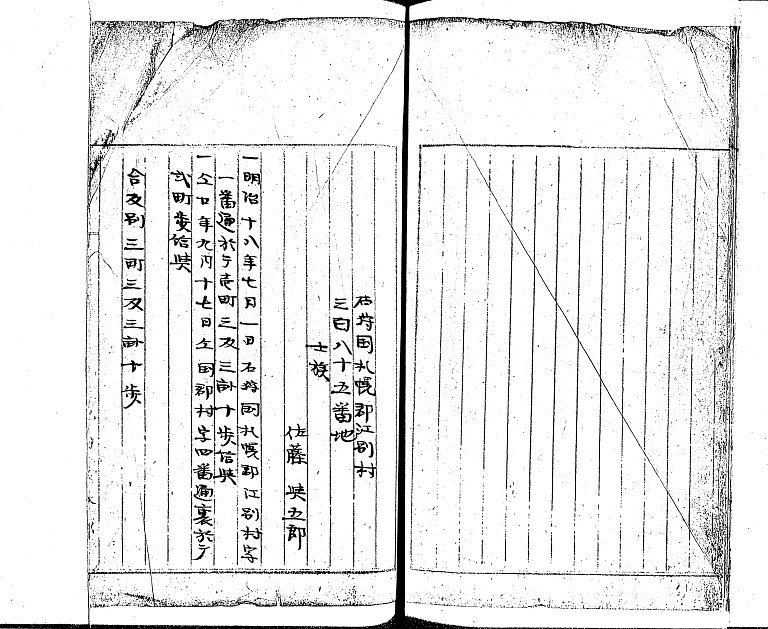 石狩国札幌郡江別村
三百八十五番地
士族
佐藤
五郎
一明治十八年七月一日石狩国札幌郡江別村字
一番通於テ壱町三反三畝十歩
一仝廿年九月十七日仝国郡村字四番通裏於テ
弐町
合反別三町三反三畝十歩